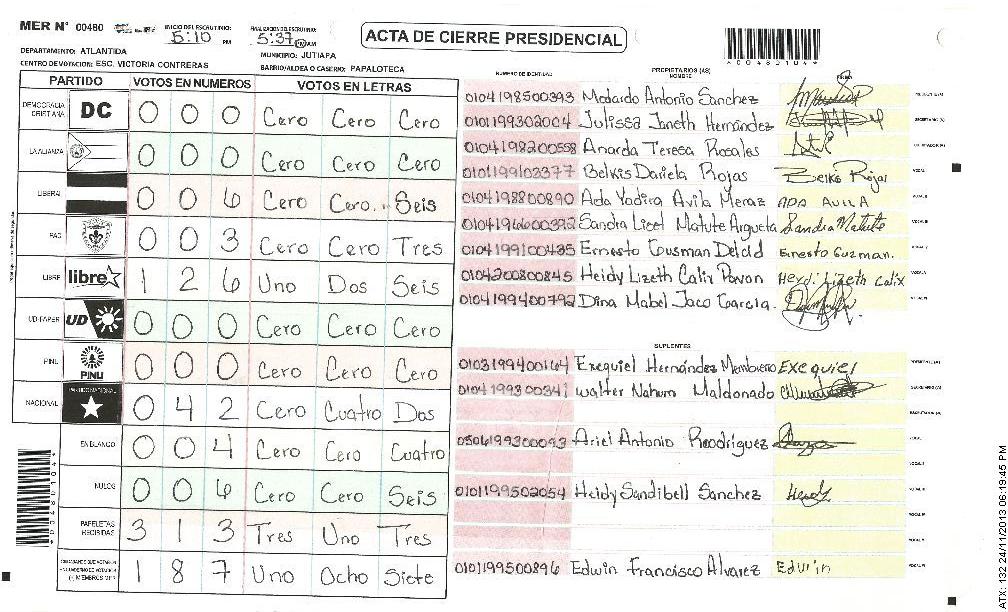 MER N° 00480
INICIO DEL ESCRUTINIO:
5:10 PM
FINALIZACION DEL ESCRUTINIO:
5:37 PM AM
ACTA DE CIERRE PRESIDENCIAL
*00480104*
DEPARTAMENTO: ATLANTIDA
MUNICIPIO: JUTIAPA
CENTRO DE VOTACION: ESC. VICTORIA CONTRERAS
BARRIO/ALDEA O CASERIO: PAPALOTECA
PARTIDO VOTOS EN NUMEROS VOTOS EN LETRAS
DEMOCRACIA CRISTIANA DC 0 0 0 Cero Cero Cero
LA ALIANZA 0 0 0 Cero Cero Cero
LIBERAL 0 0 6 Cero Cero Seis
PAC 0 0 3 Cero Cero Tres
LIBRE libre 1 2 6 Uno Dos Seis
UD-FAPER UD 0 0 0 Cero Cero Cero
PINU PINU 0 0 0 Cero Cero Cero
NACIONAL PARTIDO NACIONAL 0 4 2 Cero Cuatro Dos
EN BLANCO 0 0 4 Cero Cero Cuatro
NULOS 0 0 6 Cero Cero Seis
PAPELETAS RECIBIDAS 3 1 3 Tres Uno Tres
1 8 7 Uno Ocho Siete
NUMERO DE IDENTIDAD PROPIETARIOS (AS) NOMBRE
0104198500393 Modardo Antonio Sanchez
0101199302004 Julissa Janeth Hernández
0104198200558 Ananda Teresa Rosales
0101199103377 Belkis Daniela Rojas Belkis Rojas
0104198800890 Ada Yadira Avila Meraz ADA AVILA
0104196600392 Sandra Licet Matute Argueta Sandra Matute
0104199100435 Ernesto Gusman Delcid Ernesto Guzman.
0104200800845 Heidy Lizeth Calix Pavon Heydi Lizeth Calix
0104199400792 Dina Mabel Jaco Garcia.
SUPLENTES
0103199400164 Exequiel Hernández Membreño EXequiel
0104199300341 Walter Nahum Maldonado
0506199300093 Ariel Antonio Rodriguez
0101199502054 Heidy Sandibell Sanchez Heidy
0101199500896 Edwin Francisco Alvarez Edwin
*00480104*
ATX: 132 24/11/2013 06:19:45 PM